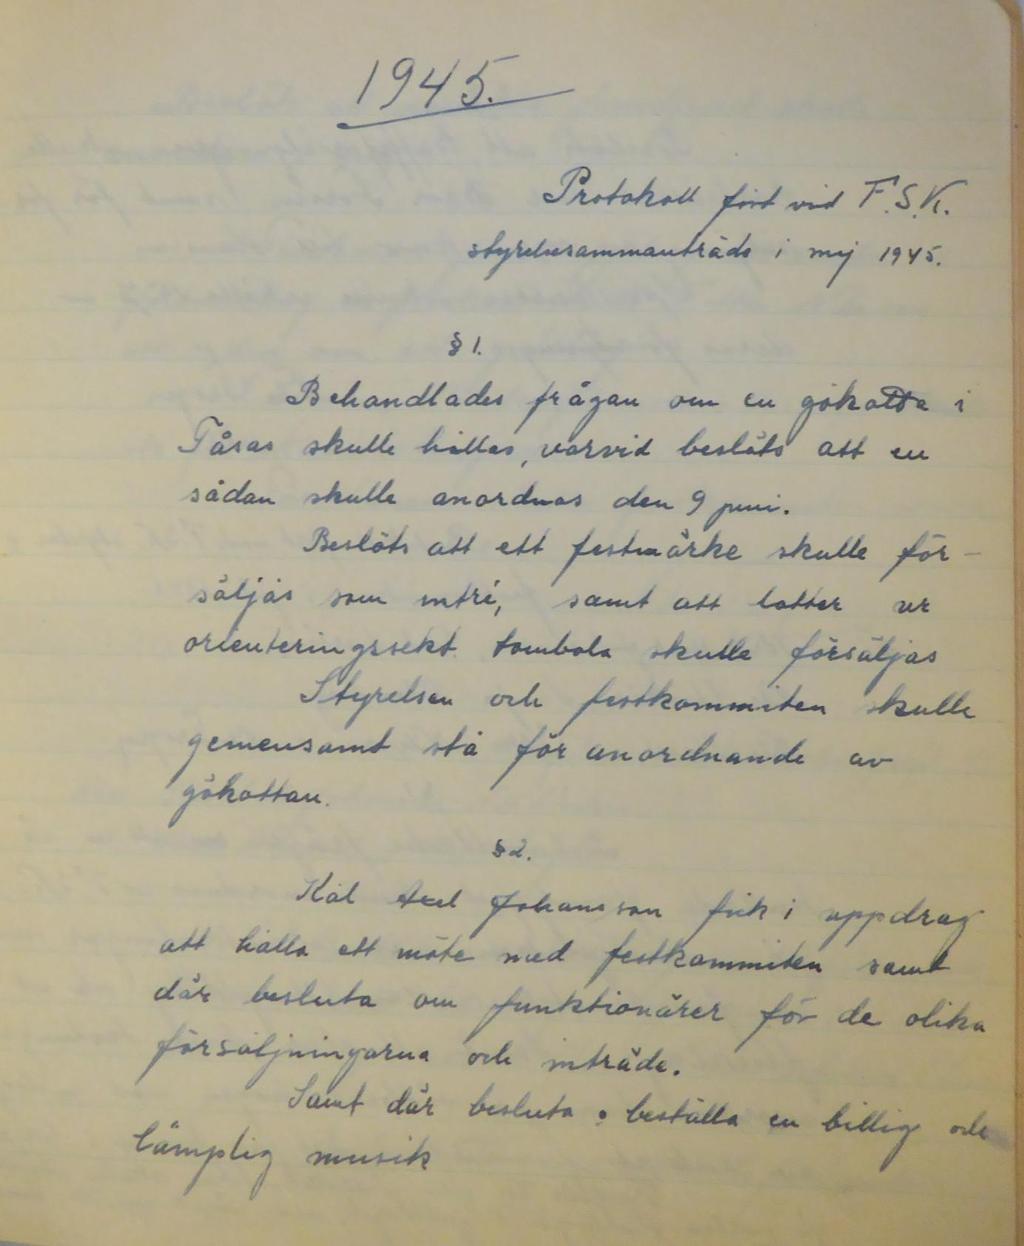 1945.
Protokoll fört vid F.S.K.
styrelsesammanträde i maj 1945.
§ 1.
Behandlades frågan om en gökotta i
Tåsas skulle hållas, varvid beslöts att en
sådan skulle anordnas den 9 juni.
Beslöts att ett festmärke skulle för-
säljas som intré, samt att lotter ur
orienteringssekt. tombola skulle försäljas
Styrelsen och festkommiten skulle
gemensamt stå för anordnande av
gökottan.
§ 2.
Kal Axel Johansson fick i uppdrag
att hålla ett möte med festkommiten samt
där besluta om funktionärer för de olika
försäljningarna och inträde.
Samt där besluta o beställa en billig och
lämplig musik